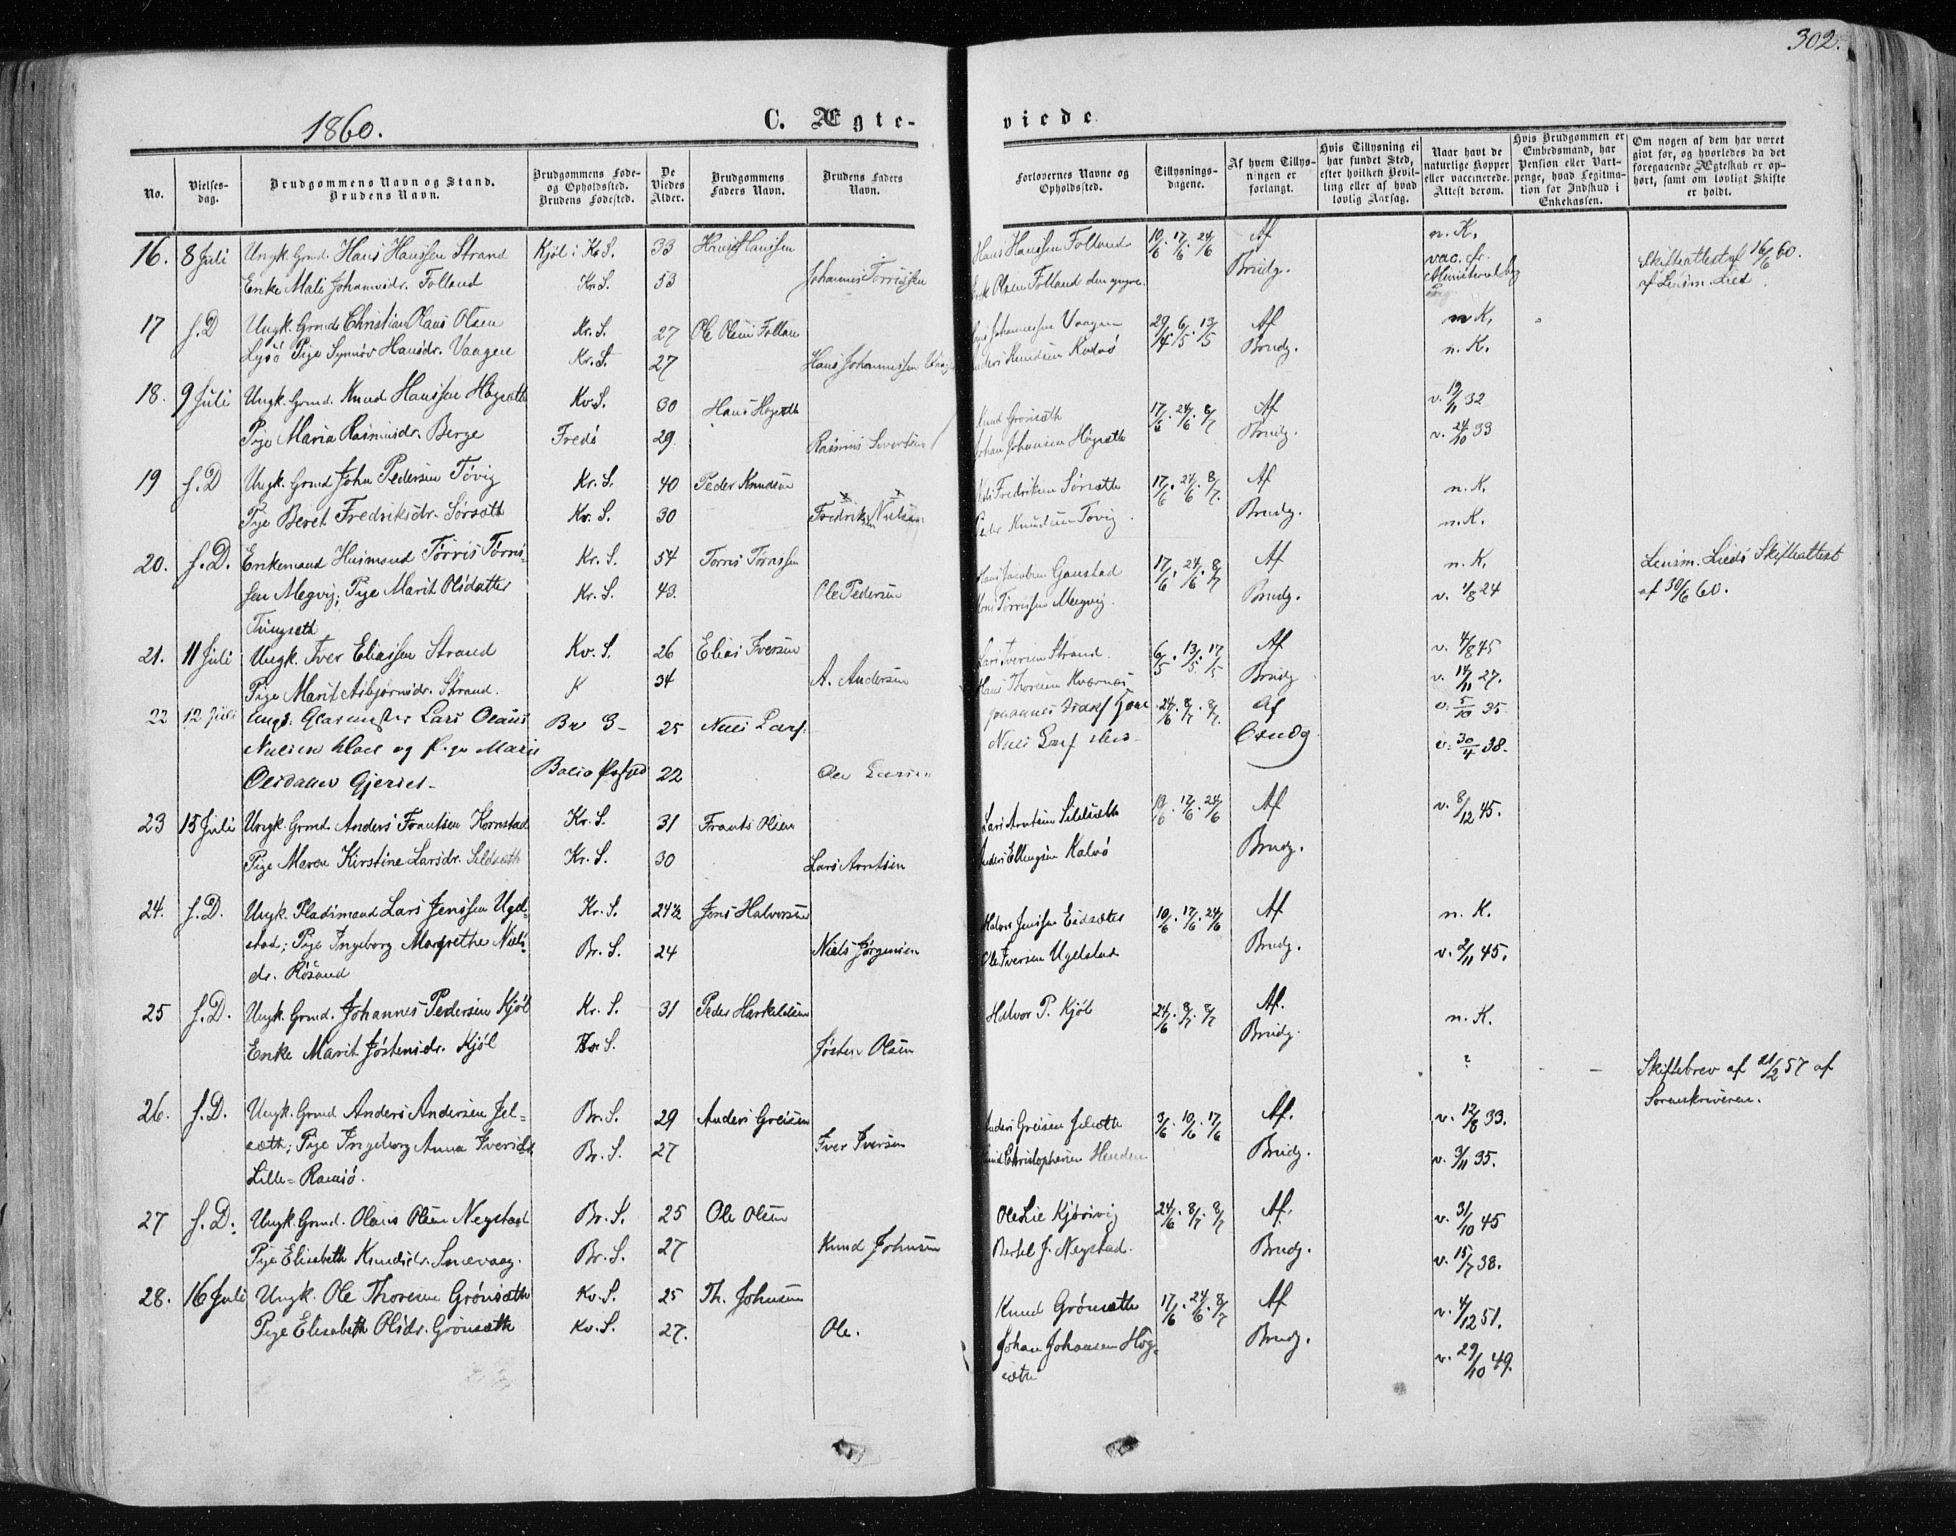 302.
1860.
C. Ægte-
viede
No.
Vielses-
dag.
Brudgommens Navn og Stand.
Brudens Navn.
Brudgommens Føde-
og Opholdssted.
Brudens Fødested.
De
Viedes
Alder.
Brudgommens
Faders Navn.
Brudens Faders
Navn.
Forlovernes Navne og
Opholdssted.
Tillysnings-
dagene.
Af hvem Tillys-
ningen er
forlangt.
Hvis Tillysning ei
har fundet Sted,
efter hvilken Bevil-
ling eller af hvad
lovlig Aarsag.
Naar havt de
naturlige Kopper
eller vaccinerede.
Attest derom.
Hvis Brudgommen er
Embedsmand, har
Pension eller Vart-
penge, hvad Legitima-
tion for Indskud i
Enkekassen.
Om nogen af dem har været
givt før, og hvorledes da det
foregaaende Ægteskab er op-
hørt, samt om lovligt Skifte
er holdt.
16. 8 Juli Ungk. Grmd. Hans Hanssen Strand Kjøl i Kv. S. 33 Hans Hanssen Hans Hanssen Folland 10/6. 17/6. 24/6 Af n. K.
Enke Mali Johannisdr. Folland Kr. S. 53 Johannes Tørrissen Erik Olsen Folland den yngre Brudg. vac. Skifteattest af 16/6 60.
af Lensm. Lied
17 f. D Ungk. Grmd Christian Olaus Olsen Kr. S. 27 Ole Olsen Follan Johannessen Vaagen 29/4 6/5. 13/5 Af n K.
Lysø Pige Synnøv Hansdr. Vaagen Kr. S. 27 Hans Johannessen Knudsen Kalvø Brudg. n. K.
18. 9 Juli Ungk. Grmd. Knud Hanssen Høgsæth Kv. S. 30 Hans Høgsæth Knud Grønsæth 17/6. 24/6 8/7 Af v. 19/11 32
Pige Maria Rasmusdr. Berge Fredø 29. Rasmus Sivertsen Johan Johansen Høgsæth Brudg. v. 24/10 33
19 f. D Ungk. Grmd John Pedersen Tøvig Kr. S. 40 Peder Knudsen Fredriksen Sørsæth 17/6 24/6 8/7. Af n. K.
Pige Beret Fredriksdr. Sørsæth Kv. S. 30 Fredrik Nielsen Peder Knudsen Tøvig. Brudg. n. K.
20. f. D. Enkemand Husmand Tørris Tørris- Kr. S. 54 Tørris Tørrissen Hans Jacobsen Gaustad 17/6. 24/6 8/7 Af n. K. Lensm. Lieds Skifteattest
sen Megvig; Pige Marit Olsdatter Kr. S. 43. Ole Pedersen Tørrissen Megvig. Brudg. v. 1/8 24 af 30/6 60.
Tungsæth
21. 11 Juli Ungk. Iver Eliassen Strand Kv. S. 26 Elias Iversen Lars Iversen Strand. 6/5 13/5. 17/5 Af v. 4/8 45
Pige Marit Asbjørnsdr. Strand. K 34 A. Andersen Hans Thoresen Kvernæs Brudg v. 14/11 27.
22 12 Juli Ungk: Glarmester Lars Olaus Br S- 25 Niels Lars: 24/6 8/7. 8/7. Af v. 5/10 35.
Nielsen og Pige Marie Niels Lars Brudg v. 30/4 38.
Olsdatter 22 Ole Larsen
23 15 Juli Ungk. Grmd Anders Frantsen Kornstad Kr. S. 31 Frants Olsen Lars Arntsen Sildsæth 10/6. 17/6. 24/6 Af v. 8/12 45.
Pige Maren Kirstine Larsdr. Sildsæth Kr. S. 30 Lars Arntsen Anders Ellingsen Kalvø Brudg.
24. f. D. Ungk. Pladsmand Lars Jenssen Ugel- Kr. S. 24½ Jens Halvorsen Halvor Jenssen Eidsæter 10/6. 17/6 24/6 Af n. K.
stad; Pige Ingeborg Margrethe Niels- Br. S. 24 Niels Jørgensen Ole Iversen Ugelstad Brudg. v. 2/11 45.
dr. Røsand
25 f. D. Ungk. Grmd. Johannes Pedersen Kjøl Kr. S. 31 Peder Harkelsen Halvor P. Kjøl 24/6. 8/7. 8/7 Af. n. K.
Enke Marit Jøstensdr. Kjøl Kr. S. Jøsten Olsen Brudg. ? Skiftebrev af 21/2 57 af
Sorenskriveren.
26. f. D. Ungk. Grmd Anders Andersen Jel- Br. S. 29 Anders Greisen Anders Greisen Jelsæth 3/6. 10/6. 17/6 Af. v. 12/8 33.
sæth; Pige Ingeborg Anna Iversdr. Br. S. 27 Iver Iversen Christophersen Henden Brudg. v. 3/11 35.
Lille-Ramsø.
27 f. D. Ungk. Grmd. Olaus Olsen Negstad Br. S. 25 Ole Olsen Ole Lie Kjørsvig 24/6. 8/7. 8/7 Af. v. 31/10 45
Pige Elisabeth Knudsdr. Snevaag. Br. S. 27 Knud Johnsen Bertel J. Negstad. Brudg. v. 15/7 38.
28. 16 Juli Ungk. Ole Thoresen Grønsæth Kv. S. 25 Th. Johnsen Knud Grønsæth 17/6 24/6. 8/7 Af v. 4/12 51.
Pige Elisabeth Olsdr. Grønsæth Kv. S. 27. Ole. Johan Johansen Høg- Brudg. v. 29/10 49.
sæth